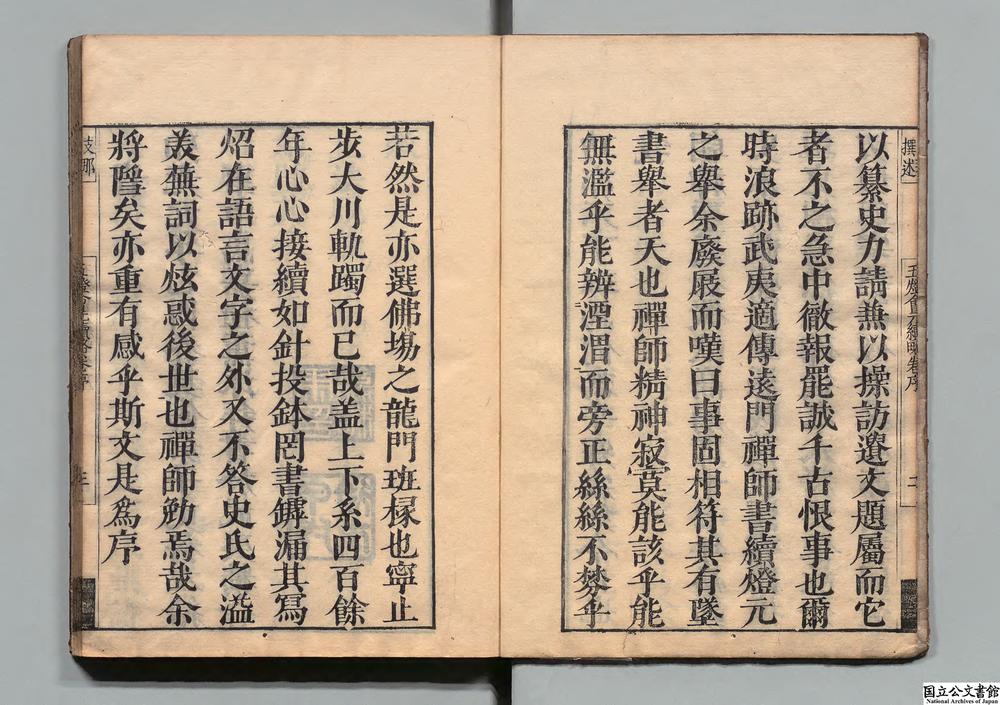 以纂史力請兼以操訪遼文題屬而它
者不之急中徹報罷誠千古恨事也爾
時浪跡武夷適傳遠門禪師書續燈元
之舉余廢屐而嘆曰事固相符其有墜
書舉者天也禪師精神寂寞能該乎能
無濫乎能辨湮湄而旁正絲絲不棼乎
若然是亦選佛場之龍門班椽也寧止
步大川軌躅而已哉盖上下系四百餘
年心心接續如針投鉢罔書罅漏其寫
炤在語言文字之外又不答史氏之溢
美蕪詞以炫惑後世也禪師勉焉哉余
將隱矣亦重有感乎斯文是為序
撰述
五燈會元續略卷序
二
支那
三
国立公文書館
National Archives of Japan